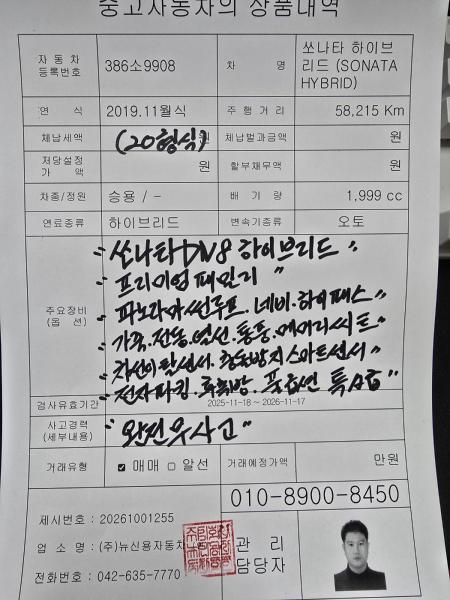 중고자동차의 상품내역
자동차등록번호 386소9908 차명 쏘나타 하이브리드 (SONATA HYBRID)
연식 2019.11월식 주행거리 58,215 Km
체납세액 (20형식) 원 체납벌과금액 원
저당설정가액 원 할부채무액 원
차종/정원 승용 / - 배기량 1,999 cc
연료종류 하이브리드 변속기종류 오토
주요장비 (옵션)
"쏘나타 DN8 하이브리드"
"프리미엄 패밀리"
"파노라마썬루프. 네비. 하이패스
"가죽.전동.열선.통풍.메모리시트
"차선이탈센서. 충돌방지스마트센서"
"전자파킹. 특A급"
검사유효기간 2025-11-18 ~ 2026-11-17
사고경력 (세부내용) "완전무사고"
거래유형 ☑ 매매 □ 알선 거래예정가액 만원
010-8900-8450
제시번호 : 20261001255
업소명 : (주)뉴신용자동차
전화번호 : 042-635-7770
관리담당자